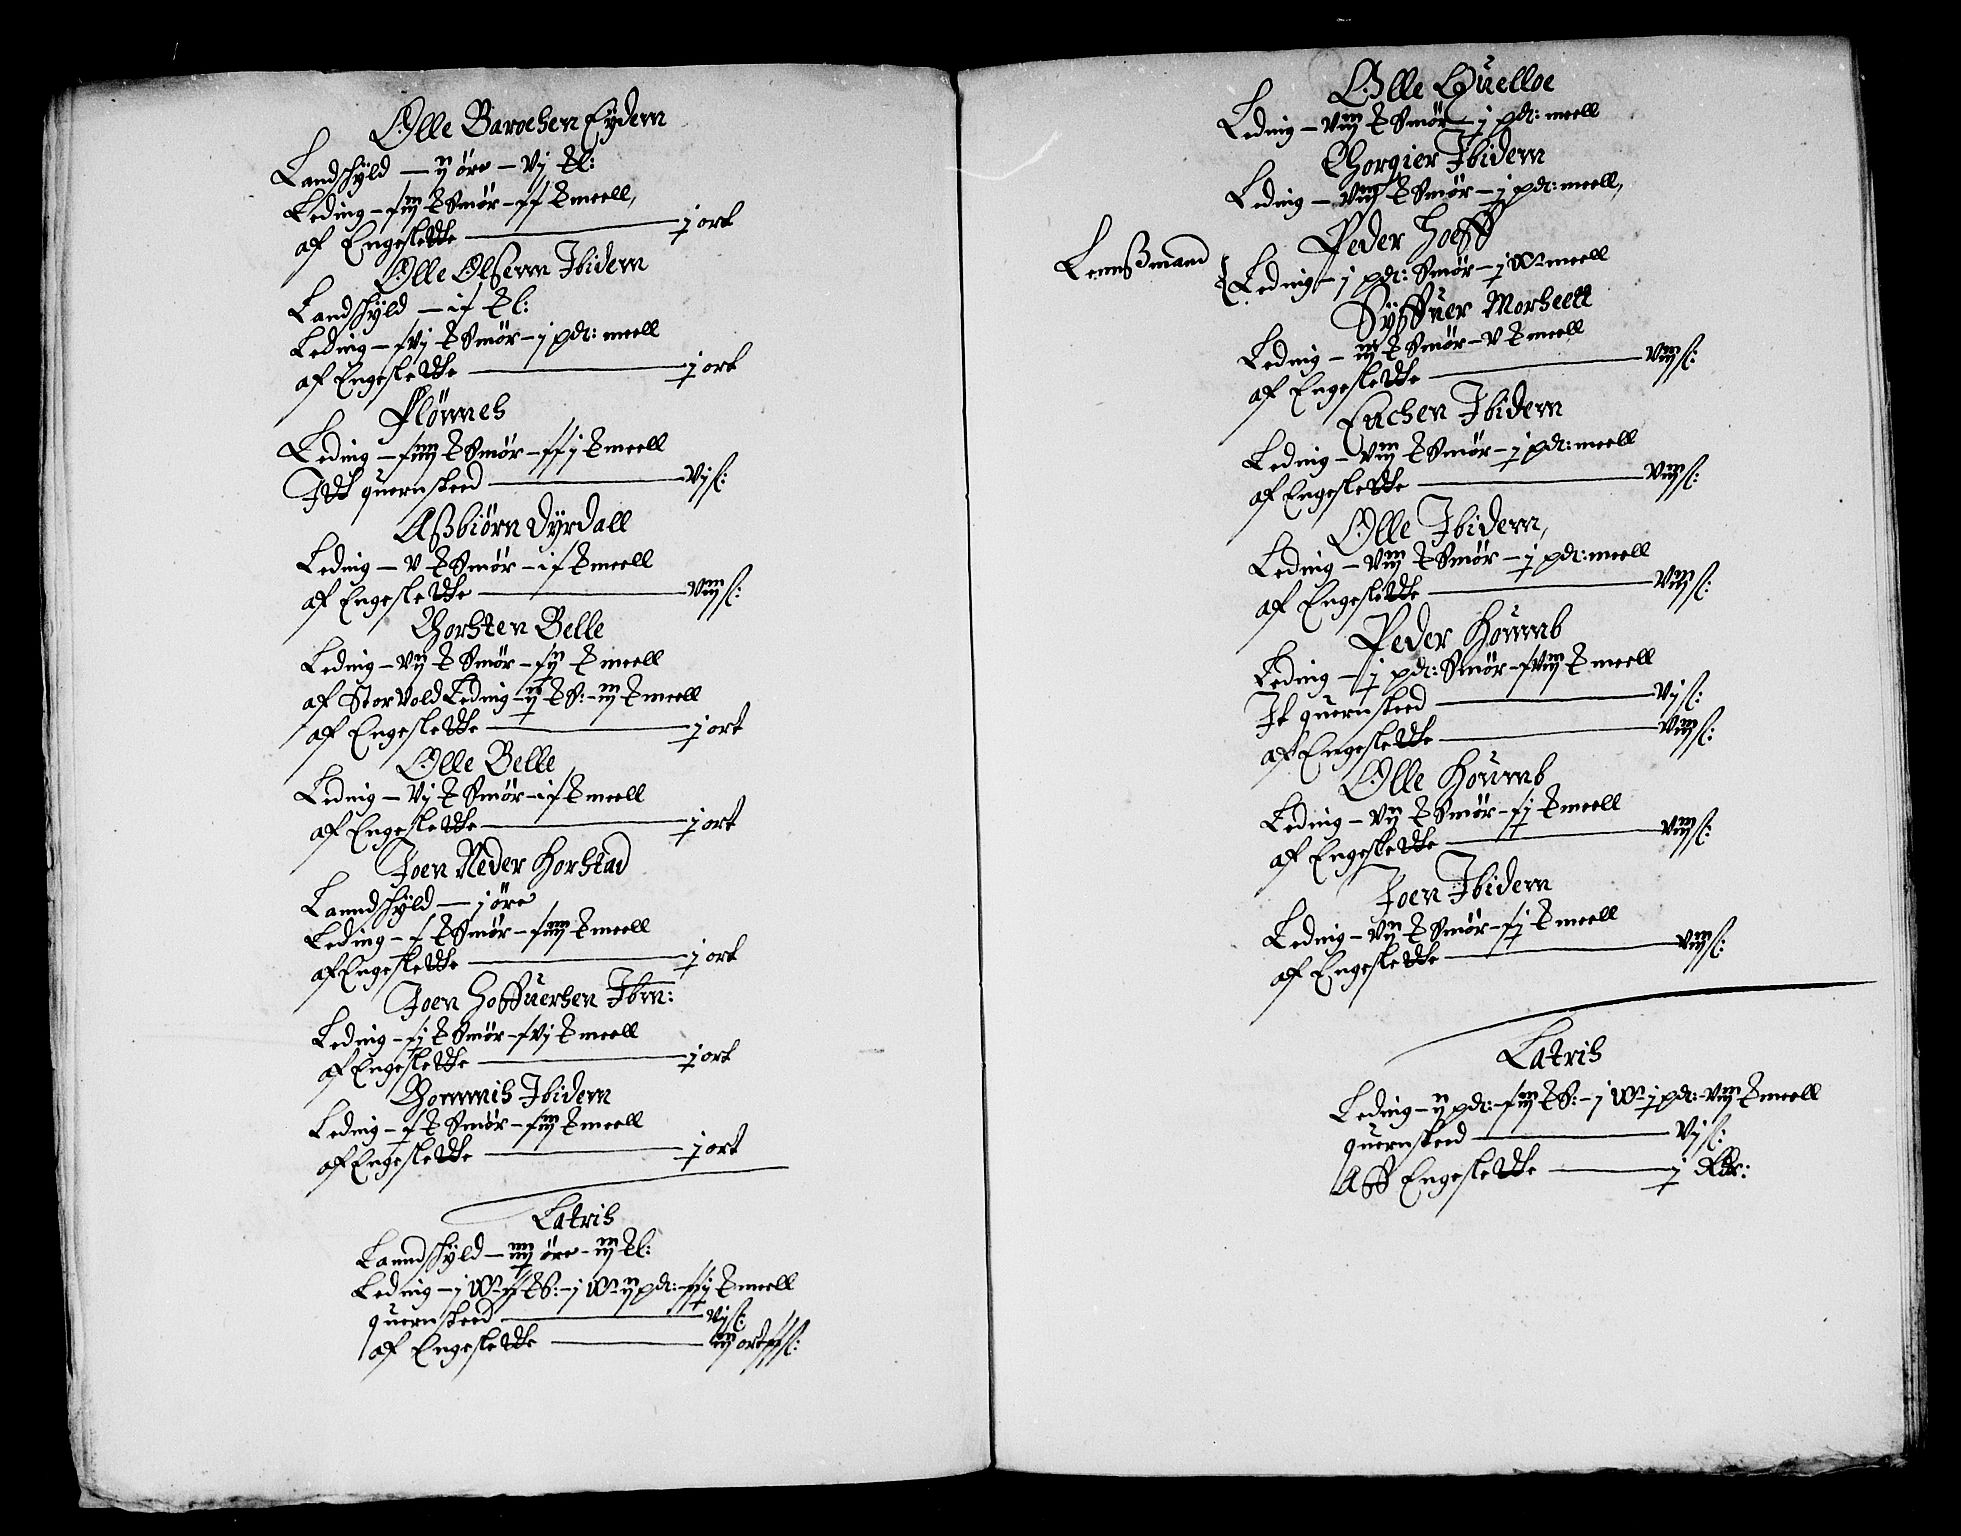 Olle Barochsen Eydem
Landskyld – ij öre – vj kl:
Leding – xiij ℔ Smör – xx ℔ meell,
af Engeslette – j ort
Olle Olsenn Ibidem
Landskyld – ix kl:
Leding – xvj ℔ Smör – j pdt: meell
af Engeslette – j ort
Plönnes
Leding – xiiij ℔ Smör – xxj ℔ meell
Itt quernsteed – vj sl:
Assbiörn Dyrdall
Leding – v ℔ Smör – ix ℔ meell
af Engeslette – viij sl:
Thorsten Belle
Leding – vij ℔ Smör – xij ℔ meell
af Storvold Leding – ij ℔ S: – iij ℔ meell
af Engeslette – j ort
Olle Belle
Leding – vj ℔ Smör – ix ℔ meell
af Engeslette – j ort
Joen Neder Horstad
Lanndskyld – j öre
Leding – x ℔ Smör – xiiij ℔ meell
af Engeslette – j ort
Joen Hoffuersen Ibm:
Leding – xj ℔ Smör – xvj ℔ meell
af Engeslette – j ort
Tommis Ibidem
Leding – x ℔ Smör – xiij ℔ meell
af Engeslette – j ort
Latris
Lanndskyld – iiij öre – iij kl:
Leding – j W ℔ S: – j W ij pdt: – xxj ℔ meell
quernsteed – vj sl:
af Engeslette – ort sl:
Olle Quelloe
Leding – viij ℔ Smör – j pdt: meell
Thorgier Ibidem
Leding – viij ℔ Smör – j pdt: meell,
Peder Hoeff
Lennssmand { Leding – j pdt: Smör – j W meell
Syffuer Morheelt
Leding – iij ℔ Smör – v ℔ meell
af Engeslette – viij sl:
Leding – viij ℔ Smör – j pdt: meell
af Engeslette – viij sl:
Olle Ibidem,
Leding – viij ℔ Smör – j pdt: meell
af Engeslette – viij sl:
Peder Houmb
Leding – j pdt: Smör – xviij ℔ meell
It quernsteed – vj sl:
af Engeslette – viij sl:
Olle Houmb
Leding – vij ℔ Smör – xj ℔ meell
af Engeslette – viij sl:
Joen Ibidem
Leding – vij ℔ Smör – xj ℔ meell
af Engeslette – viij sl:
Latris
Leding – ij pdt: – xiij ℔ S: – j W j pdt: viij ℔ meell
quernsteed – vj sl:
Aff Engeslette – j Rdr: